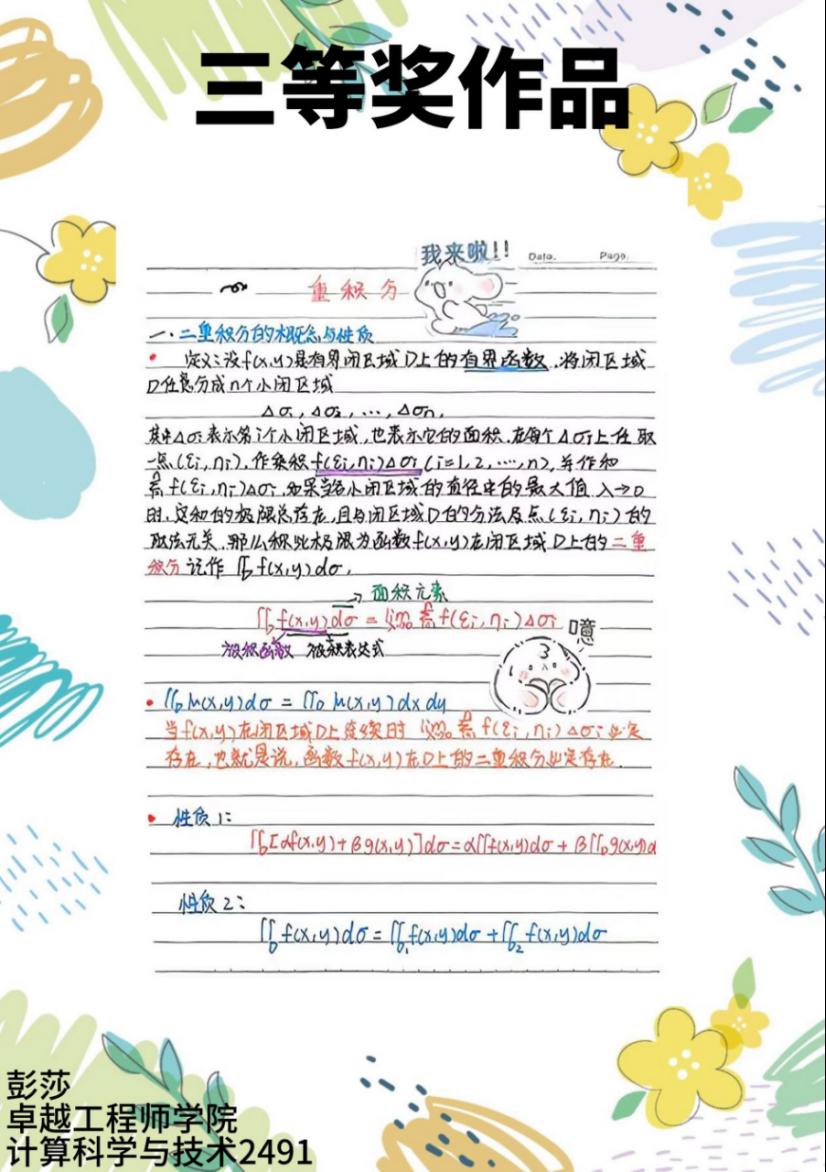 三等奖作品
我来啦!!
Data. Page.
重积分
一.二重积分的概念与性质
定义:设f(x,y)是有界闭区域D上的有界函数.将闭区域
D任意分成n个小闭区域
Δσ₁,Δσ₂,…,Δσn,
其中Δσi表示第i个小闭区域,也表示它的面积.在每个Δσi上任取
一点(ξi,ηi),作乘积f(ξi,ηi)Δσi(i=1,2,…,n),并作和
Σf(ξi,ηi)Δσi.如果当各小闭区域的直径中的最大值λ→0
时,这和的极限总存在,且与闭区域D的分法及点(ξi,ηi)的
取法无关,那么称此极限为函数f(x,y)在闭区域D上的二重
积分记作∬_D f(x,y)dσ,
→面积元素
∬_D f(x,y)dσ = lim_{λ→0} Σ f(ξi,ηi)Δσi
噫
被积函数 被积表达式
∬_D μ(x,y)dσ = ∬_D μ(x,y)dxdy
当f(x,y)在闭区域D上连续时 lim_{λ→0} Σ f(ξi,ηi)Δσi必定
存在,也就是说,函数f(x,y)在D上的二重积分必定存在.
性质1:
∬_D[αf(x,y)+βg(x,y)]dσ=α∬f(x,y)dσ+β∬_D g(x,y)d
性质2:
∬_D f(x,y)dσ=∬_D₁ f(x,y)dσ+∬_D₂ f(x,y)dσ
彭莎
卓越工程师学院
计算科学与技术2491